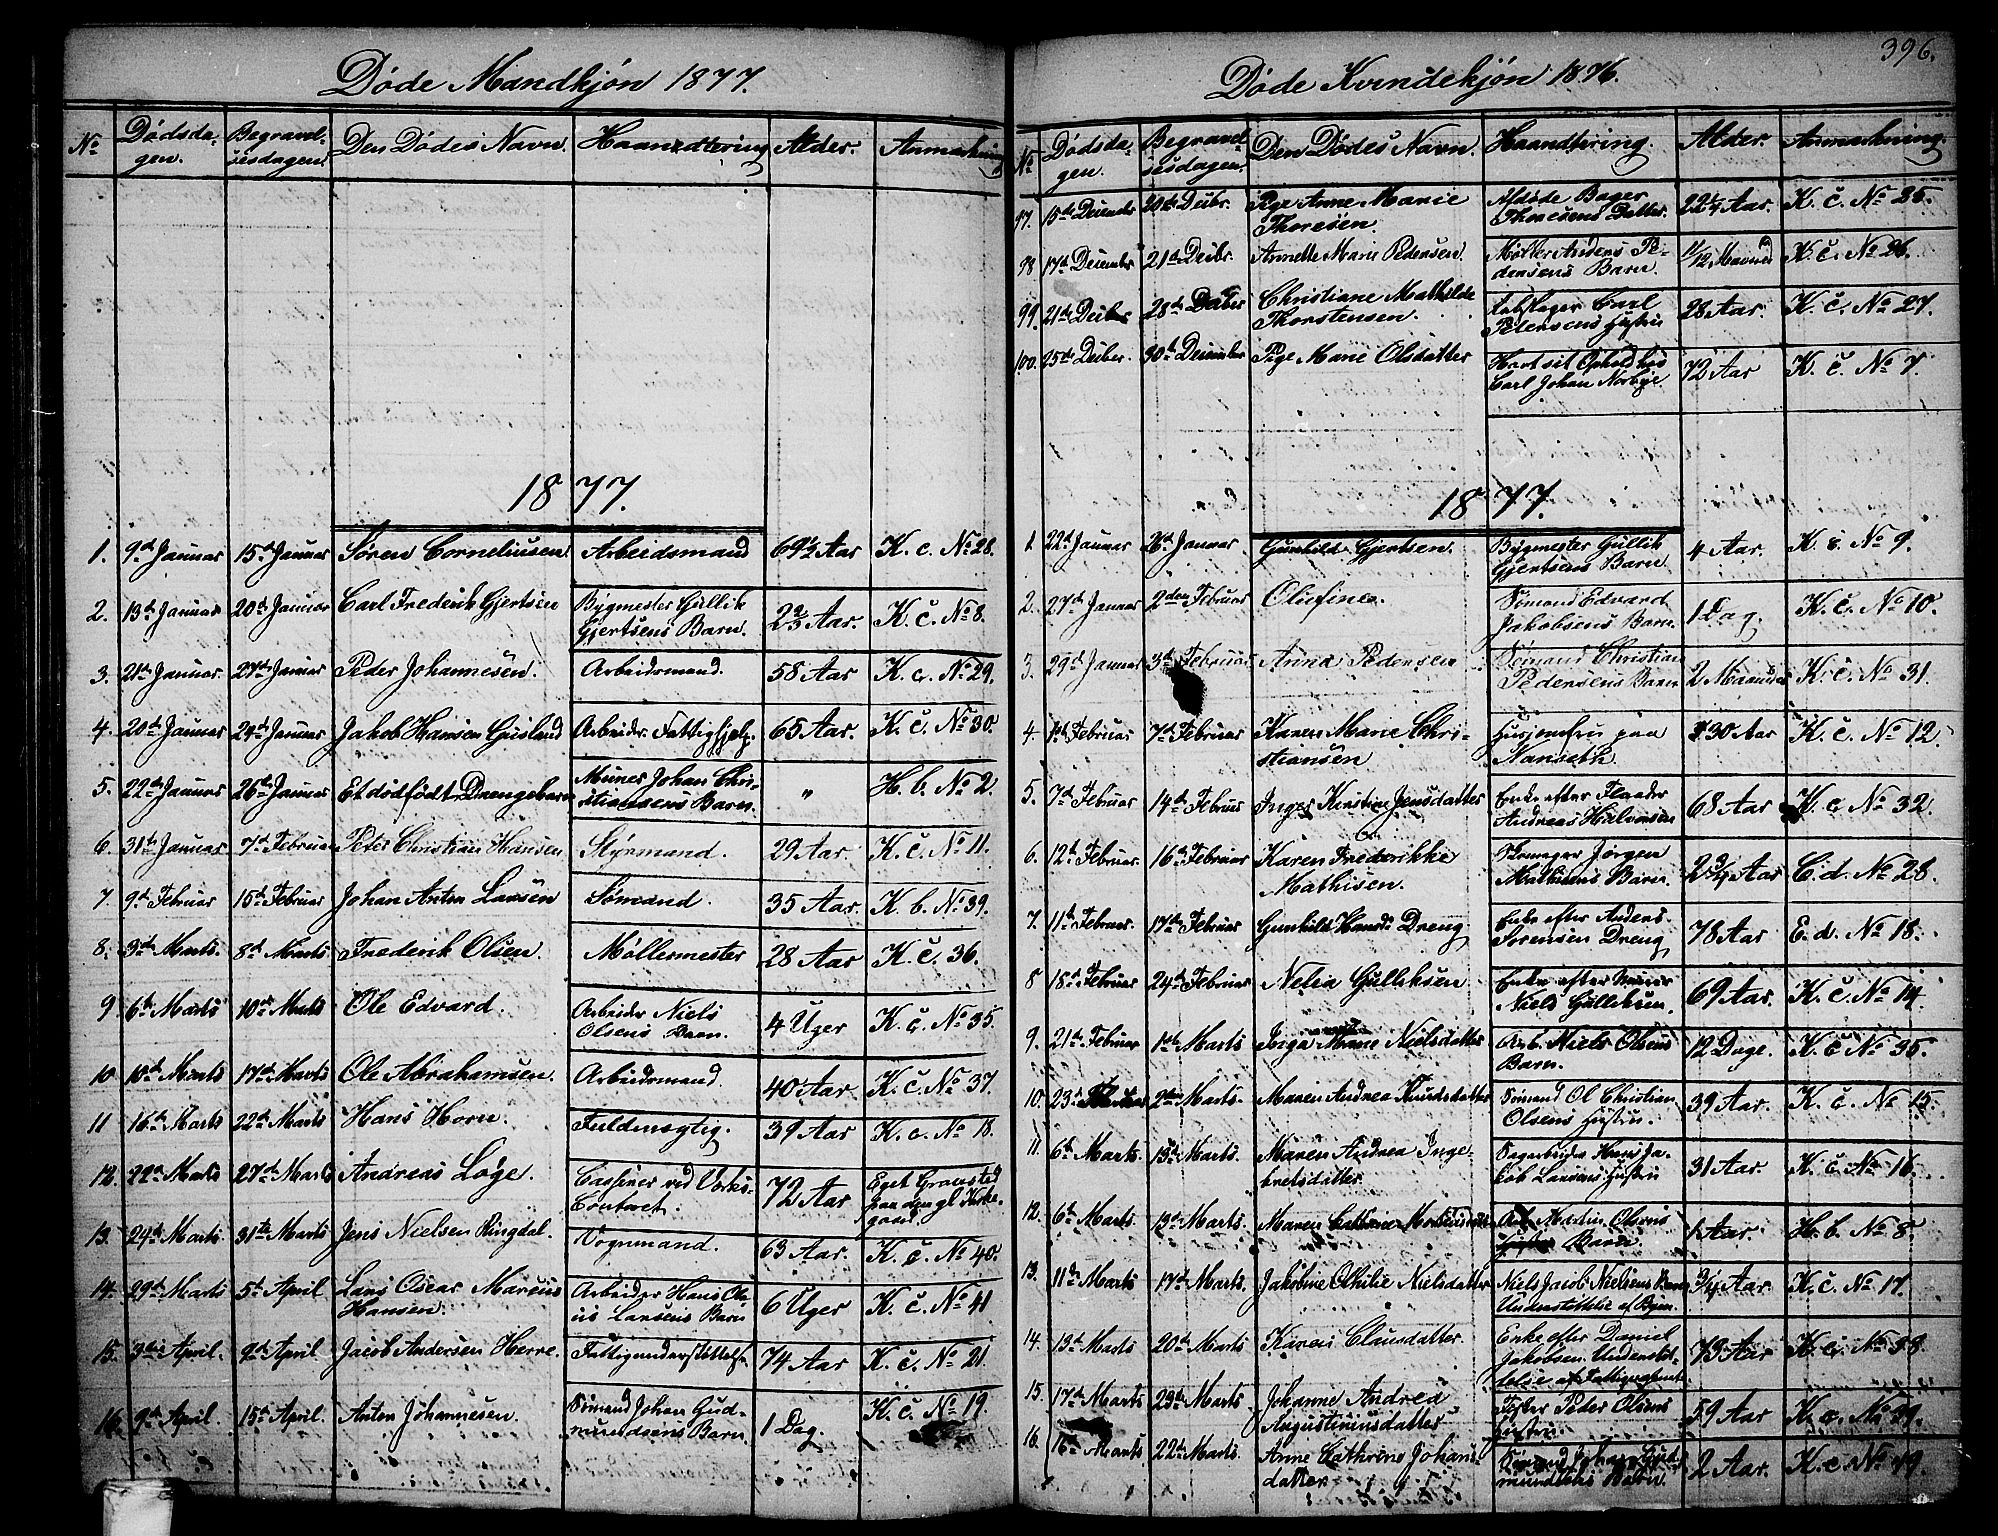 396.
Døde Mandkjøn 1877.
No Dødsdagen. Begravelsesdagen. Den Dødes Navn. Haandtering Alder. Anmærkning
1877.
1. 9de Januar 15de Januar Søren Corneliusen Arbeidsmand 69½ Aar K. c. No 28.
2. 13de Januar 20de Januar Carl Frederik Gjertsen Bygmester Gullik
Gjertsens Barn. 2⅔ Aar. K. c. No 8.
3. 21de Januar. 27de Januar Peder Johannesen. Arbeidsmand. 58 Aar K. c. No 29.
4. 20de Januar 24de Januar Jakob Hansen Arbeider. Fattighjelp. 65 Aar. K. c. No 30.
5. 22de Januar 26de Januar Et dødfødt Drengebarn Johan Chri-
stiansens Barn. " H. b. No 2.
6. 31te Januar 7de Februar Peter Christian Hansen Styrmand. 29 Aar. K. c. No 11.
7. 9de Februar 15de Februar Johan Anton Larsen Sømand. 35 Aar. K. b. No 39.
8. 3die Marts. 8de Marts Frederik Olsen. Møllermester 28 Aar K. c. 36.
9 6te Marts 10de Marts Ole Edvard. Arbeider Niels
Olsens Barn. 4 Uger K. c. No 35.
10 10de Marts 17de Marts Ole Abrahamsen. Arbeidsmand. 40 Aar. K. c. No 37.
11 16de Marts 22de Marts Hans Horn. Fuldmægtig. 39 Aar K. c. No 18.
12. 22de Marts 27de Marts Andreas Loge. Casserer ved Værks-
Contoret. 72 Aar Eget Gravsted
paa den gl. Kirke-
gaard.
13. 24de Marts 31te Marts Jens Nielsen Ringdal. Vognmand. 63 Aar. K. c. No 40.
14. 29de Marts 5te April Lars Oscar Marcus
Hansen. Arbeider Hans
Larsens Barn 6 Uger K. c. No 41
15. 3die April. 9de April. Jacob Andersen Herre. Fattigunderstøttelse 74 Aar K. c. No 21.
16. 9de April. 15de April. Anton Johannesen. Sømand Johan Gud-
mundsens Barn. 1 Dag. K. c. No 19.
Døde Kvindekjøn 1876.
No Dødsdagen. Begravelsesdagen. Den Dødes Navn. Haandtering. Alder. Anmærkning.
97. 15de December 20de Decbr. Pige Anne Marie
Thoresen. Afdøde Bager
Thoresens Datter. 22¼ Aar. K. c. No 25.
98 17de December 21de Decbr. Annette Marie Pedersen Møller Anders Pe-
dersens Barn. 11/12 Maaned K. c. No 26.
99. 21de Decbr 28de Decber Christiane Mathilde
Thorstensen. Carl
Pedersens Hustru 28 Aar. K. c. No 27.
100. 25de Decber. 30de December Pige Marie Olsdatter Havt sit Ophold hos
Carl Johan Norbye. 72 Aar K. c. No 7.
1877.
1. 22de Januar 26de Januar Gunhild Gjertsen. Bygmester Gullik
Gjertsens Barn. 4 Aar. K. c. No 9.
2. 27de Januar 2den Februar Olufine. Sømand Edvard
Jakobsens Barn. 1 Dag. K. c. No 10.
3. 29de Januar 3die Februar Anna Pedersen Sømand Christian
Pedersens Barn 2 Maaneder K. c. No 31.
4. 1ste Februar 7de Februar Karen Marie Chri-
stiansen. Husjomfru paa
Nanseth. 30 Aar K. c. No 12.
5. 7de Februar 14de Februar Inger Kirstine Jensdatter Enke efter
Andreas Halvorsen 68 Aar K. c. No 32.
6. 12te Februar. 16de Februar Karen Frederikke
Mathisen. Jørgen
Mathisens Barn. 2¾ Aar C. d. No 28.
7. 11te Februar. 17de Februar Gunhild Hansd. Dreng. Enke efter Anders
Sørensen Dreng 78 Aar E. d. No 18.
8 18de Februar 24de Februar Nelia Gulliksen Enke efter
Niels Gulliksen. 69 Aar. K. c. No 14.
9. 21de Februar 1ste Marts Inga Marie Nielsdatter Arb. Niels Olsens
Barn. 12 Dage. K. c No 35.
10. 23de Februar 2den Marts. Maren Andrea Knudsdatter Sømand Ol Christian
Olsens Hustru. 39 Aar. K. c. No 15.
11. 6te Marts. 13de Marts. Maren Andrea Inge-
bretsdatter. Hans Ja-
kob Larsens Hustru 31 Aar. K. c. No 16.
12. 6te Marts. 13de Marts. Maren Arb. Martin Olsens
Barn. 1 Aar. H. b. No 8.
13. 11te Marts 17de Marts. Jakobine Othilie Nielsdatter Niels Jacob Nielsens Barn
Understøttelse af Byen. ¾ Aar. K. c. No 17.
14. 13de Marts 20de Marts Karen Clausdatter. Enke efter Daniel
Jakobsen. Understøt-
telse af Fattigvæsenet 73 Aar K. c. No 38.
15. 17de Marts 23de Marts. Johanne Andrea
Augustinusdatter Peder Olsens
Hustru. 59 Aar K. c. No 39.
16. 16de Marts 22de Marts. Anne Cathrine Johans-
datter Sømand Johan Gud-
mundsens Barn. 2 Aar. K. c. No 19.